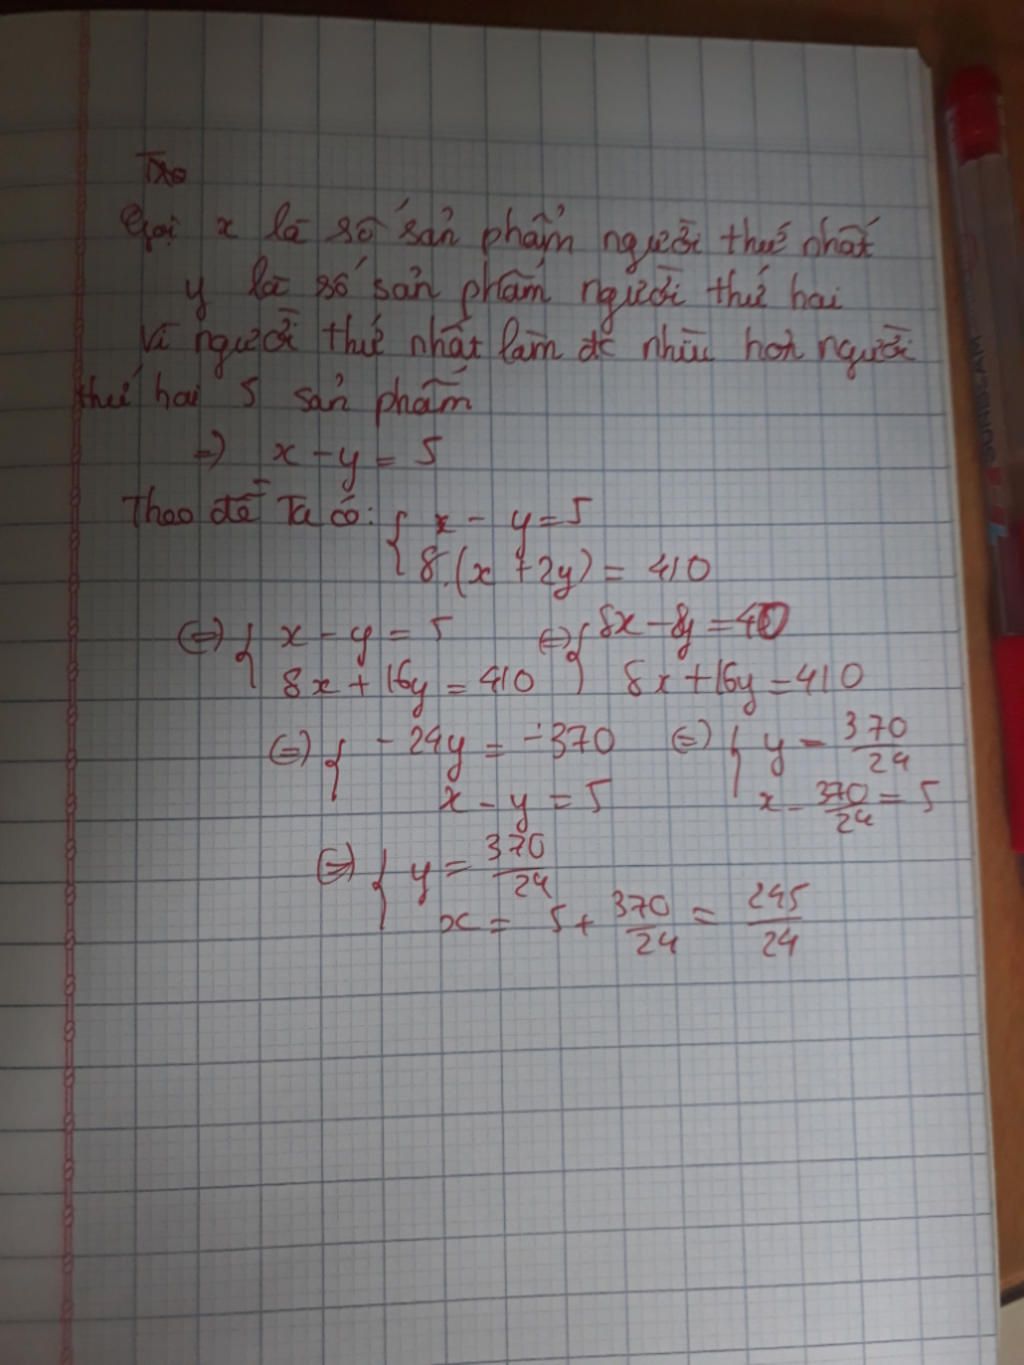 Gọi x là số sản phẩm người thứ nhất
y là số sản phẩm người thứ hai
Vì người thứ nhất làm đc nhìu hơn người
thứ hai 5 sản phẩm
=> x - y = 5
Theo đề Ta có: { x - y = 5
8.(x + 2y) = 410
(=) { x - y = 5 (=) { 8x - 8y = 40
8x + 16y = 410 8x + 16y = 410
(=) { - 24y = -370 (=) { y = 370/24
x - y = 5 x - 370/24 = 5
(=) { y = 370/24
x = 5 + 370/24 = 245/24